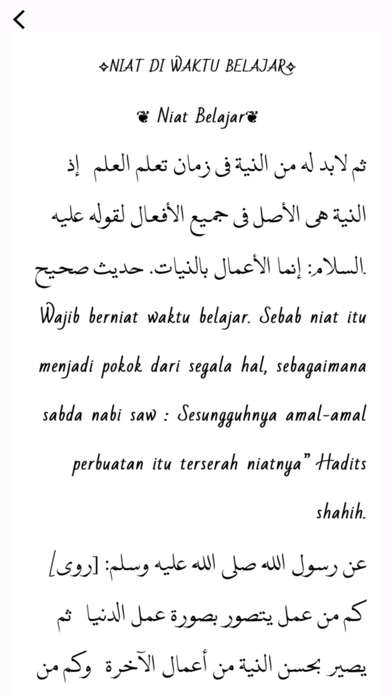 ✧NIAT DI WAKTU BELAJAR✧
❦ Niat Belajar❦
ثم لابد له من النية فى زمان تعلم العلم إذ
النية هى الأصل فى جميع الأفعال لقوله عليه
السلام: إنما الأعمال بالنيات. حديث صحيح.
Wajib berniat waktu belajar. Sebab niat itu
menjadi pokok dari segala hal, sebagaimana
sabda nabi saw : Sesungguhnya amal-amal
perbuatan itu terserah niatnya” Hadits
shahih.
عن رسول الله صلى الله عليه وسلم: [روى]
كم من عمل يتصور بصورة عمل الدنيا ثم
يصير بحسن النية من أعمال الآخرة وكم من